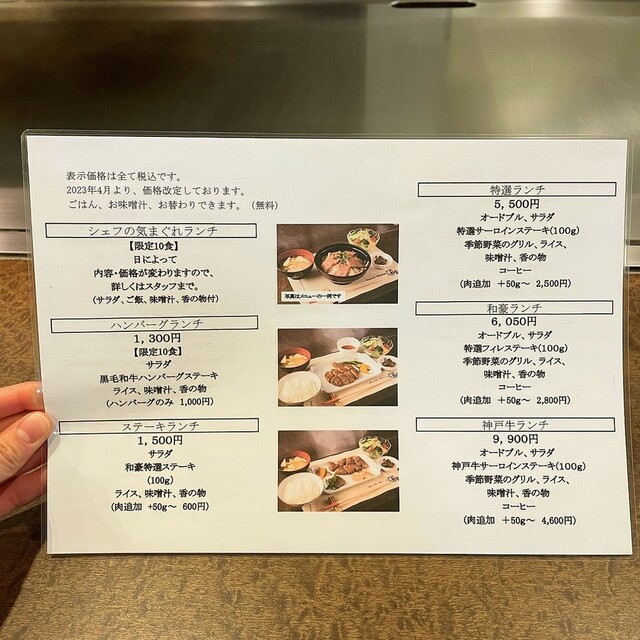 表示価格は全て税込です。
2023年4月より、価格改定しております。
ごはん、お味噌汁、お替わりできます。（無料）
シェフの気まぐれランチ
【限定10食】
日によって
内容・価格が変わりますので、
詳しくはスタッフまで。
(サラダ、ご飯、味噌汁、香の物付)
ハンバーグランチ
1,300円
【限定10食】
サラダ
黒毛和牛ハンバーグステーキ
ライス、味噌汁、香の物
(ハンバーグのみ 1,000円)
ステーキランチ
1,500円
サラダ
和豪特選ステーキ
(100g)
ライス、味噌汁、香の物
(肉追加 +50g～ 600円)
写真はメニューの一例です
特選ランチ
5,500円
オードブル、サラダ
特選サーロインステーキ(100g)
季節野菜のグリル、ライス、
味噌汁、香の物
コーヒー
(肉追加 +50g～ 2,500円)
和豪ランチ
6,050円
オードブル、サラダ
特選フィレステーキ(100g)
季節野菜のグリル、ライス、
味噌汁、香の物
コーヒー
(肉追加 +50g～ 2,800円)
神戸牛ランチ
9,900円
オードブル、サラダ
神戸牛サーロインステーキ(100g)
季節野菜のグリル、ライス、
味噌汁、香の物
コーヒー
(肉追加 +50g～ 4,600円)